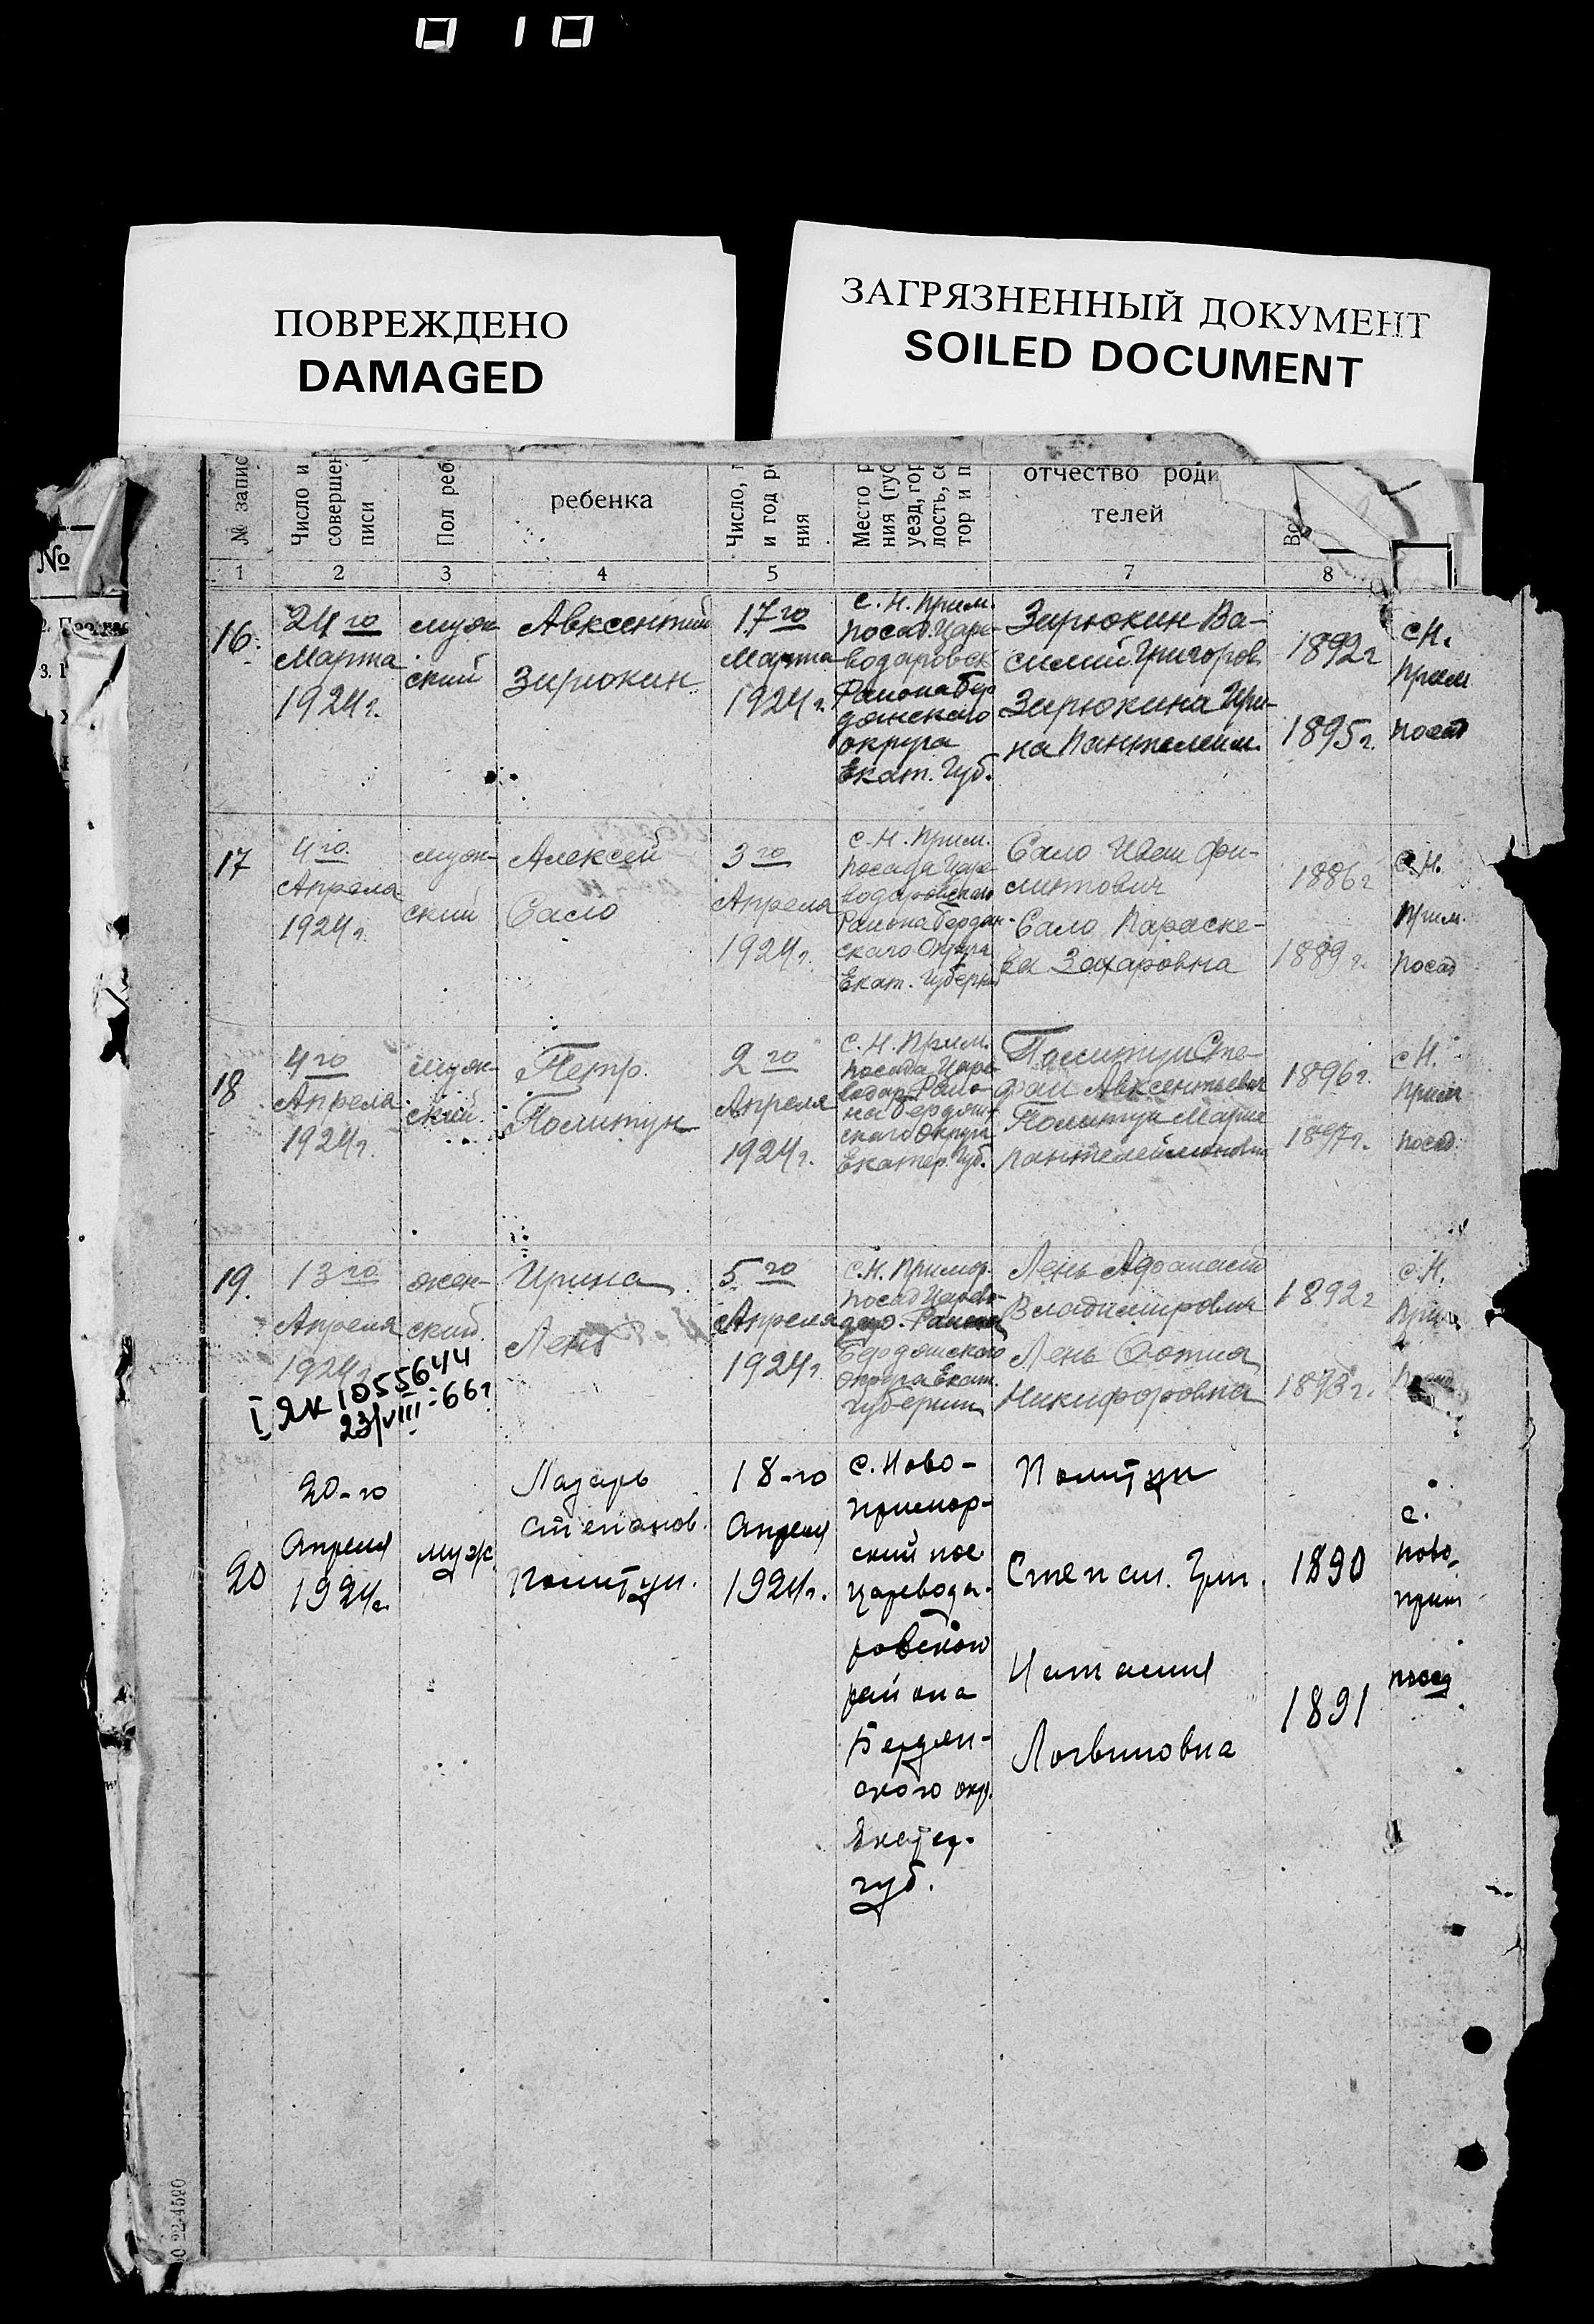 0 10
ПОВРЕЖДЕНО
DAMAGED
ЗАГРЯЗНЕННЫЙ ДОКУМЕНТ
SOILED DOCUMENT
№
3.
№ запис
Число и
совершен
писи
Пол реб
ребенка
Число,
и год р
ния
Место р
ния (губ
уезд, гор
лость, се
тор и п
отчество роди
телей
Вс
1
2
3
4
5
7
8
16.
24го
Марта
1924г.
муж
ский
Авксентий
Зирюкин
17го
Марта
1924г.
с. Н. Прим.
посад. Царе
водаровск
Района Бер
дянского
округа
Екат. Губ.
Зирюкин Ва-
силий Григоров
Зирюкина Ири-
на Пантелейм.
1892г
1895г.
с Н.
Прим
посад
17
4го
Апреля
1924г.
муж-
ский
Алексей
Сало
3го
Апреля
1924г.
с. Н. Прим.
посада Царе
водаровского
Района Бердян-
скаго Округа
Екат. Губерн
Сало Иван Фи-
липович
Сало Параске-
ва Захаровна
1886г
1889г.
с. Н.
Прим.
посад
18
4го
Апреля
1924г.
муж-
ский.
Петр.
Политун
2го
Апреля
1924г.
с. Н. Прим.
посада Царе
водар. Райо-
на Бердян
скаго Округа
Екатер. Губ.
Политун Сте-
фан Авксентьевич
Политун Мария
Пантелеймоновна
1896г.
1897г.
с Н.
Прим
посад.
19.
13го
Апреля
1924г.
жен-
ский.
Ирина
Лень
5го
Апреля
1924г.
с. Н. Примор.
посад Царево-
дар. Района
Бердянского
округа Екат.
губернии
Лень Афанасий
Владимирович
Лень Фотиа
Никифоровна
1892г
1893г.
с Н.
Прим
I ЯК 1055644
23/VIII-66г
20
20-го
Апреля
1924г.
муж.
Лазарь
Степанов.
Политун.
18-го
Апреля
1924г.
с. Ново-
примор-
ский пос
Царевода-
ровского
района
Бердян-
ского окр.
Екатер.
губ.
Политун
Степан. Григ.
Наталия
Логвиновна
1890
1891
с.
Ново-
прим
посад
22-4590